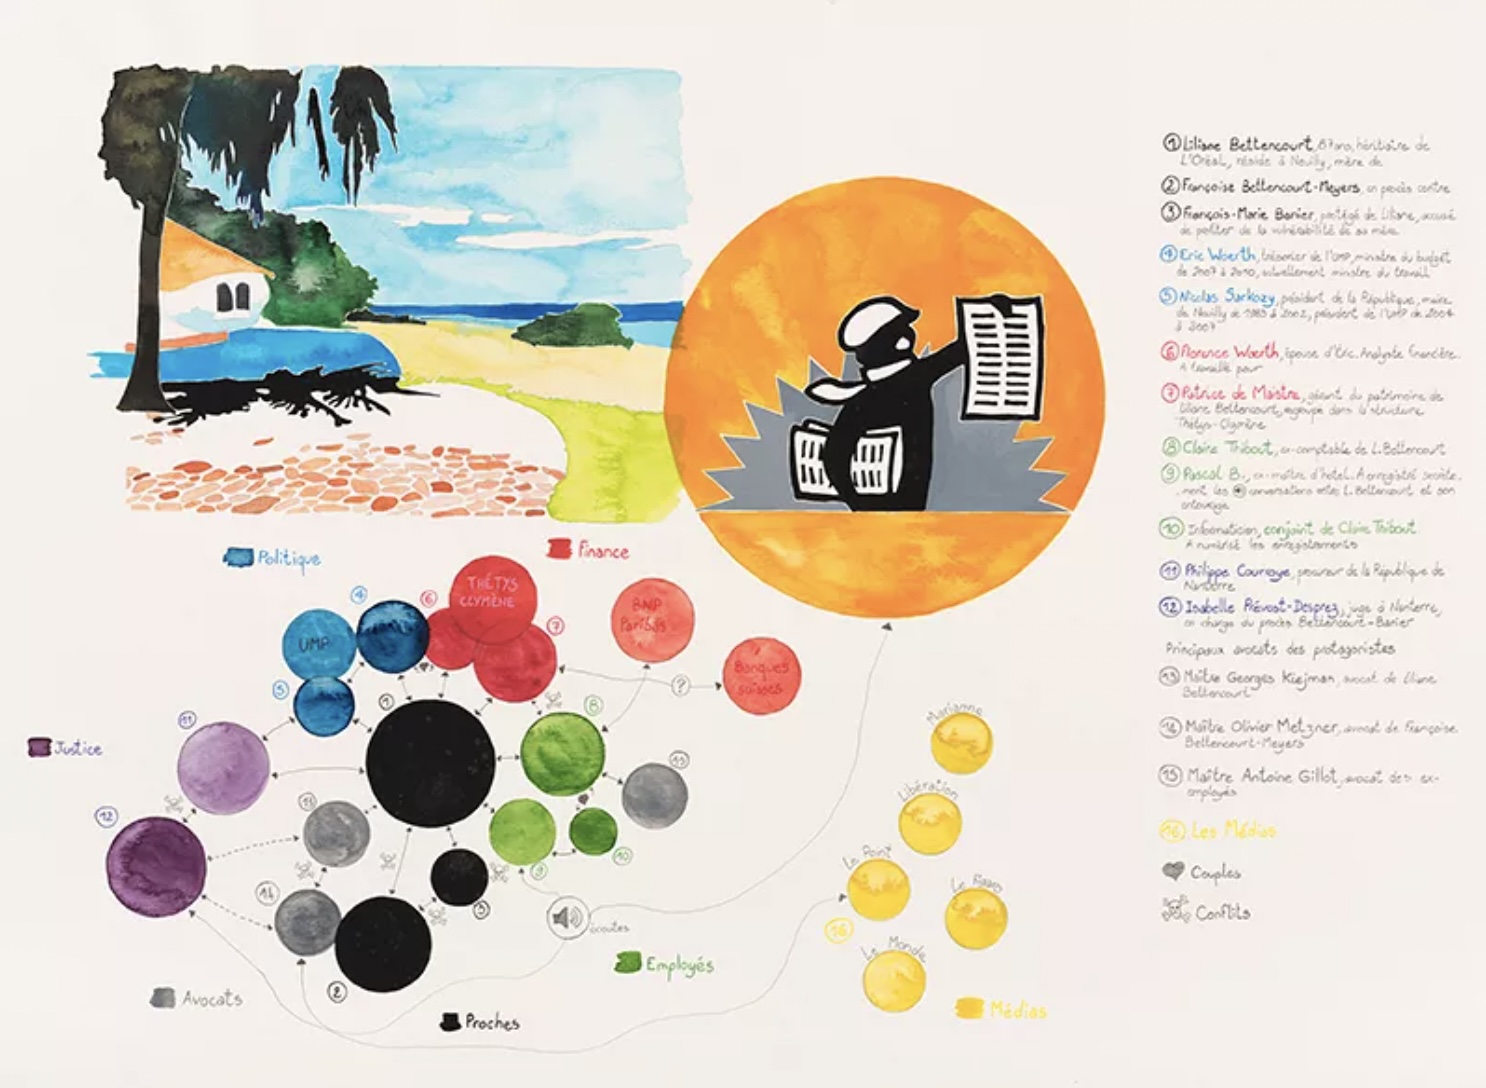 ① Liliane Bettencourt, 87 ans, héritière de
L'Oréal, réside à Neuilly, mère de
② Françoise Bettencourt-Meyers, en procès contre
③ François-Marie Banier, protégé de Liliane, accusé
de profiter de la vulnérabilité de sa mère.
④ Eric Woerth, trésorier de l'UMP, ministre du budget
de 2007 à 2010, actuellement ministre du travail
⑤ Nicolas Sarkozy, président de la République, maire
de Neuilly de 1983 à 2002, président de l'UMP de 2004
à 2007
⑥ Florence Woerth, épouse d'Eric. Analyste financière.
A travaillé pour
⑦ Patrice de Maistre, gérant du patrimoine de
Liliane Bettencourt, regroupé dans la structure
Thétys-Clymène
⑧ Claire Thibout, ex-comptable de L. Bettencourt
⑨ Pascal B., ex-maître d'hotel. A enregistré secrète-
ment les conversations entre L. Bettencourt et son
entourage
⑩ Informaticien, conjoint de Claire Thibout
A numérisé les enregistrements
⑪ Philippe Courroye, procureur de la République de
Nanterre
⑫ Isabelle Prévost-Desprez, juge à Nanterre,
en charge du procès Bettencourt-Banier
Principaux avocats des protagonistes
⑬ Maître Georges Kiejman, avocat de Liliane
Bettencourt
⑭ Maître Olivier Metzner, avocat de Françoise
Bettencourt-Meyers
⑮ Maître Antoine Gillot, avocat des ex-
employés
⑯ Les Médias
Couples
Conflits
Politique
Finance
THÉTYS
CLYMÈNE
④
⑥
UMP
⑦
BNP
Paribas
Banques
suisses
?
⑤
①
⑧
⑪
Justice
Marianne
Libération
⑫
⑩
⑨
Le Point
Le Figaro
⑭
③
écoutes
⑯
Le Monde
Employés
②
Avocats
Proches
Médias